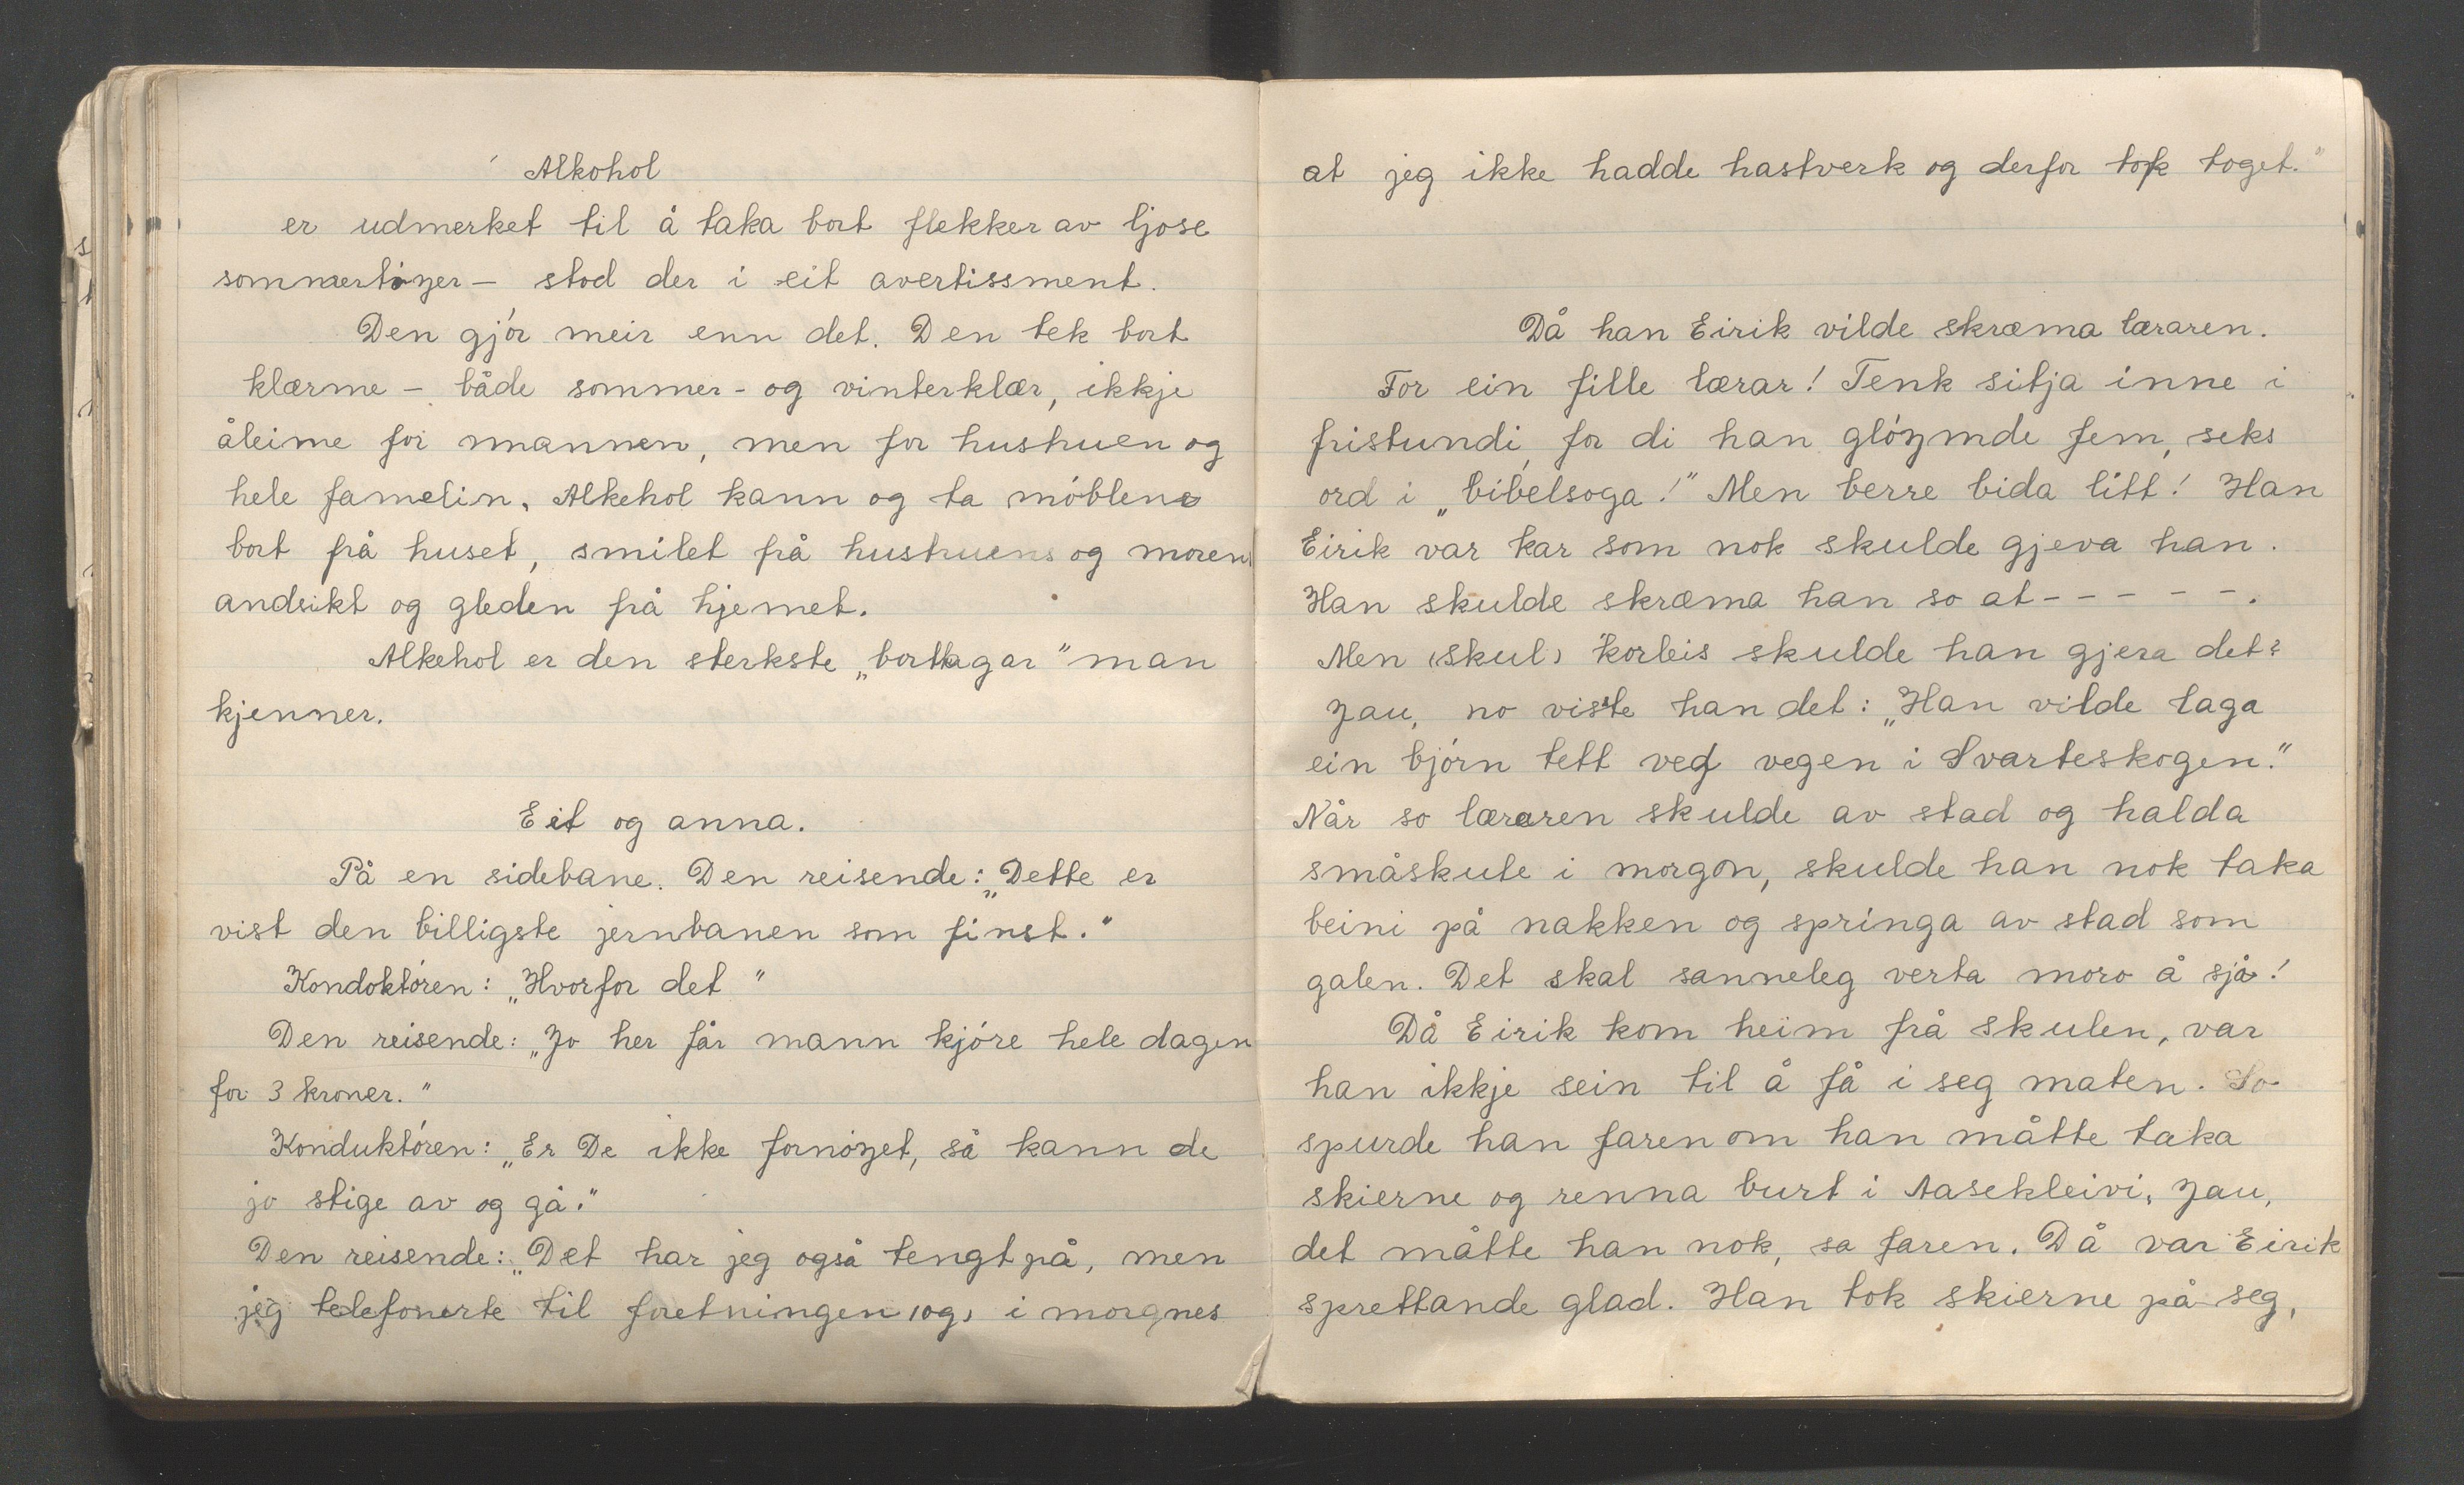 Alkohol
er udmerket til å taka bort flekker av ljose
sommertöyer – stod der i eit avertissment.
Den gjór meir enn det. Den tek bort
klærme – både sommer- og vinterklær, ikkje
åleime for mannen, men for hustruen og
hele famelin. Alkehol kann og ta móblene
bort frå huset, smilet frå hustruens og morens
andsikt og gleden frå hjemet.
Alkehol er den sterkste „borttagar" man
kjenner.
Eit og anna.
På en sidebane. Den reisende: „Dette er
vist den billigste jernbanen som finst."
Kondoktóren: „Hvorfor det"
Den reisende: „Jo her får mann kjóre hele dagen
for 3 kroner."
Konduktóren: „Er De ikke fornóyet, så kann de
jo stige av og gå."
Den reisende: „Det har jeg også tengt på, men
jeg telefonerte til foretningen (og) i morgnes
at jeg ikke hadde hastverk og derfor tok toget."
Då han Eirik vilde skræma læraren.
For ein fille lærar! Tenk sitja inne i
fristundi, for di han glóymde fem, seks
ord i „bibelsoga!" Men berre bida litt! Han
Eirik var kar som nok skulde gjeva han.
Han skulde skræma han so at - - - - -.
Men (skul) korleis skulde han gjera det?
Jau, no visste han det: „Han vilde laga
ein bjórn tett ved vegen i Svarteskogen."
Når so læraren skulde av stad og halda
småskule i morgon, skulde han nok taka
beini på nakken og springa av stad som
galen. Det skal sanneleg verta moro å sjå!
Då Eirik kom heim frå skulen, var
han ikkje sein til å få i seg maten. So
spurde han faren om han måtte taka
skierne og renna burt i Aasekleivi, Jau,
det måtte han nok, sa faren. Då var Eirik
sprettande glad. Han tok skierne på seg,